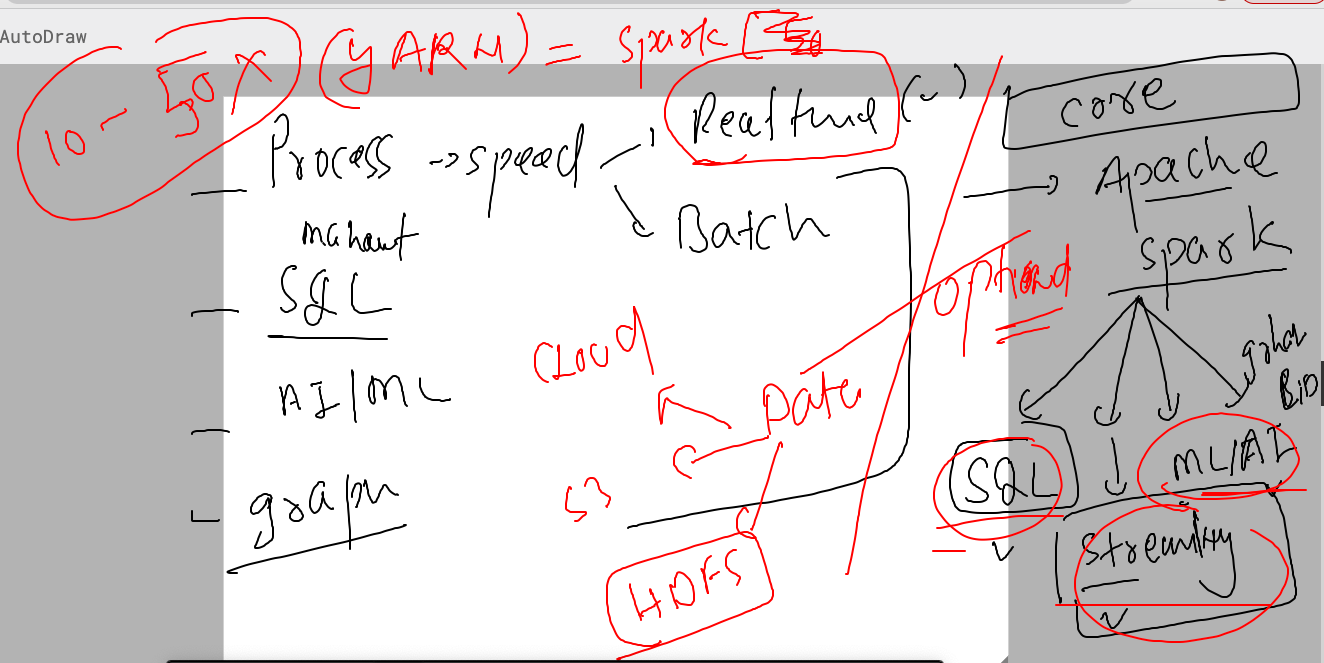 AutoDraw
10 - 50X (YARN) = Spark
Process -> speed
Realtime (✓)
Batch
mahout
SQL
AI/ML
graph
CLOUD
Data
S3
HDFS
optional
core
Apache
spark
SQL
ML/AI
Streaming